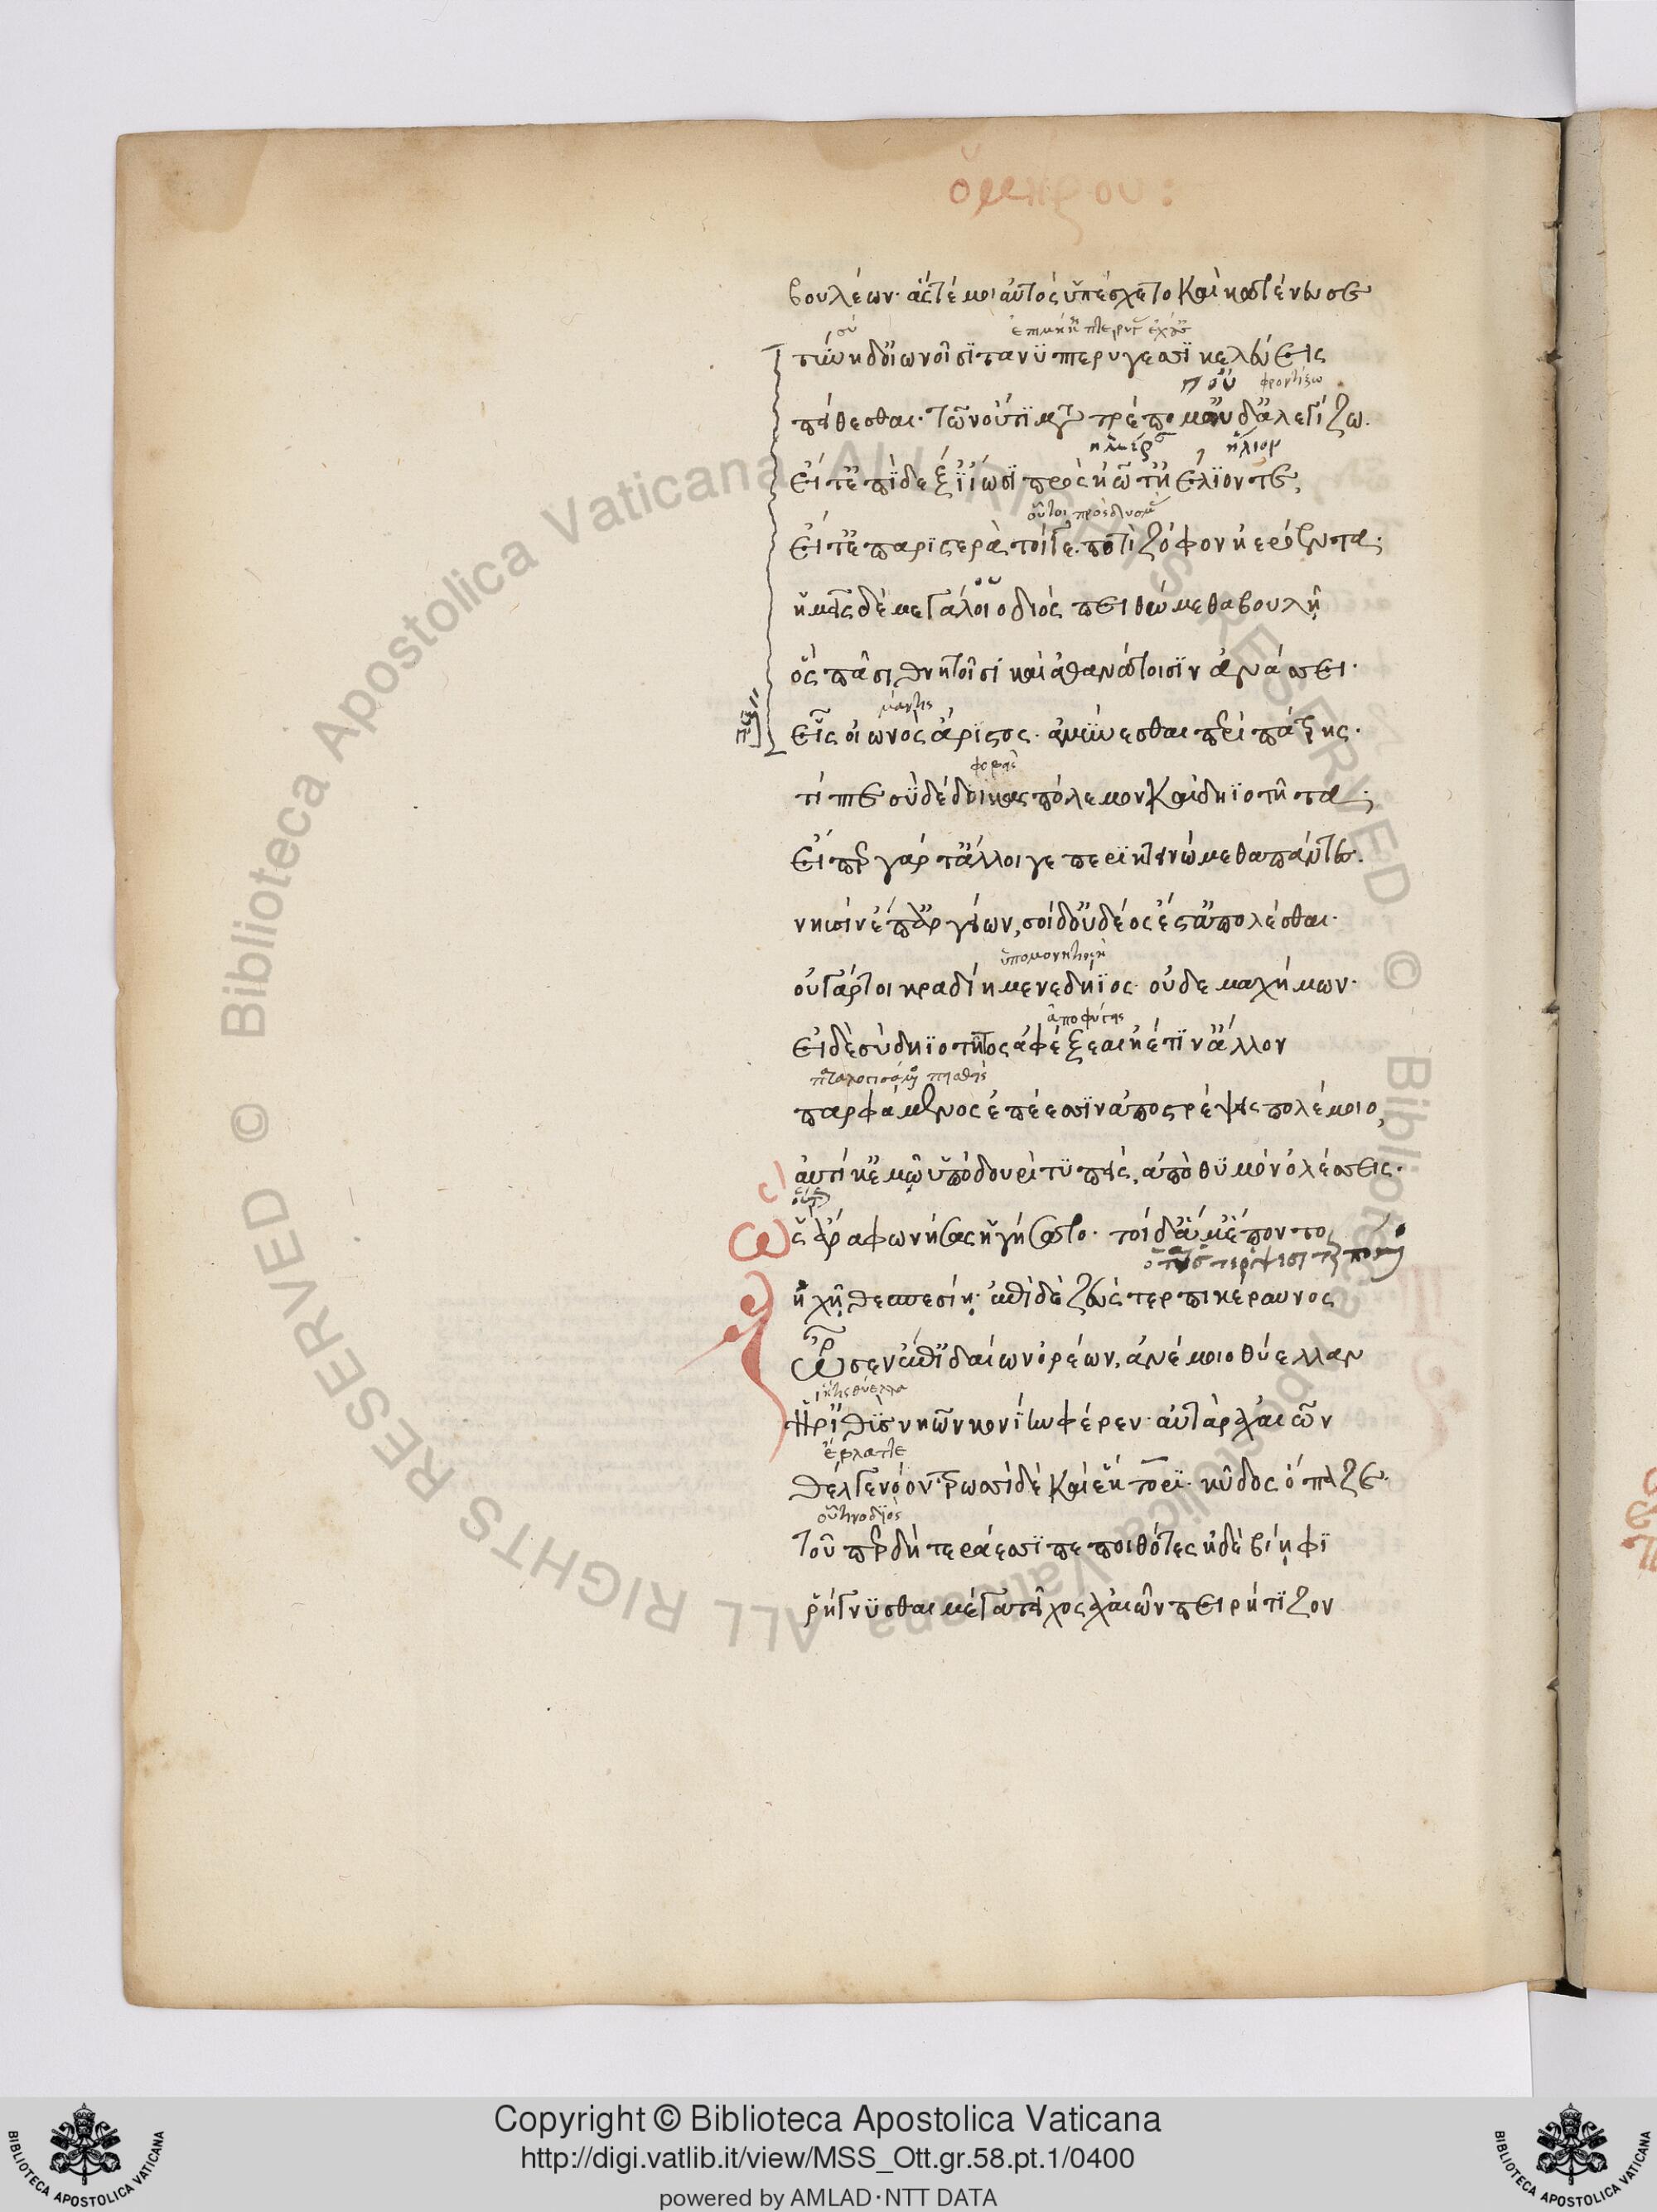 ὁμήρου:
βουλέων· ἅς τέ μοι αὐτὸς ὑπέσχετο καὶ κατένευσε
σὺ ἐπιμήκη πτέρυγας ἔχουσι
τύνη δ' οἰωνοῖσι τανυπτερύγεσσι κελεύεις
που φροντίζω
πείθεσθαι· τῶν οὔτι μετατρέπομαι οὐδ' ἀλεγίζω.
ἡμέραν ἥλιον
εἴτ' ἐπὶ δεξί' ἴωσι πρὸς ἠῶ τ' ἠέλιόν τε,
οὗτοι πρὸς δυσμὰς
εἴτ' ἐπ' ἀριστερὰ τοίγε ποτὶ ζόφον ἠερόεντα·
ἡμεῖς δὲ μεγάλοιο διὸς πειθώμεθα βουλῇ
ὃς πᾶσι θνητοῖσι καὶ ἀθανάτοισιν ἀνάσσει·
μάντις
εἷς οἰωνὸς ἄριστος· ἀμύνεσθαι περὶ πάτρης·
φοβῇ
τίπτε σὺ δέδοικας πόλεμον καὶ δηϊοτῆτα;
εἴπερ γάρ τ' ἄλλοι γε περικτεινώμεθα πάντες
νηυσὶν ἐπ' ἀργείων, σοὶ δ' οὐ δέος ἔστ' ἀπολέσθαι·
ὑπομονητικὴ
οὐ γάρ τοι κραδίη μενεδήϊος· οὐδὲ μαχήμων·
ἀποφύγης
εἰ δὲ σὺ δηϊοτῆτος ἀφέξεαι ἠέ τιν' ἄλλον
παρφάμενος ἐπέεσσιν ἀποστρέψεις πολέμοιο,
αὐτίκ' ἐμῷ ὑπὸ δουρὶ τυπεὶς, ἀπὸ θυμὸν ὀλέσσεις·
οὕτως
ὣς ἄρα φωνήσας ἡγήσατο· τοὶ δ' ἅμ' ἕποντο
ἠχῇ θεσπεσίῃ· ἐπὶ δὲ ζεὺς τερπικέραυνος
ὦρσεν ἀπ' ἰδαίων ὀρέων, ἀνέμοιο θύελλαν
ἥτις θύελλα
ἥ ῥ' ἰθὺς νηῶν κονίην φέρεν· αὐτὰρ ἀχαιῶν
ἔβλαπτε
θέλγε νόον· τρωσὶ δὲ καὶ ἕκτορι κῦδος ὄπαζε·
οὗτινος διὸς
τοῦ περ δὴ τεράεσσι πεποιθότες ἠδὲ βίηφι
ῥήγνυσθαι μέγα τεῖχος ἀχαιῶν πειρήτιζον
Copyright © Biblioteca Apostolica Vaticana
http://digi.vatlib.it/view/MSS_Ott.gr.58.pt.1/0400
powered by AMLAD·NTT DATA
© Biblioteca Apostolica Vaticana ALL RIGHTS RESERVED
© Biblioteca Apostolica Vaticana ALL RIGHTS RESERVED
BIBLIOTECA APOSTOLICA VATICANA
BIBLIOTECA APOSTOLICA VATICANA